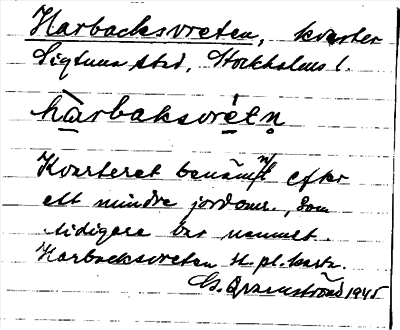 Harbacksvreten, kvarter
Sigtuna stad, Stockholms l.
hàrbaksvrétn̥
Kvarteret benämnt efter
ett mindre jordomr., som
tidigare bar namnet.
Harbacksvreten st.pl.karta.
G. 1945